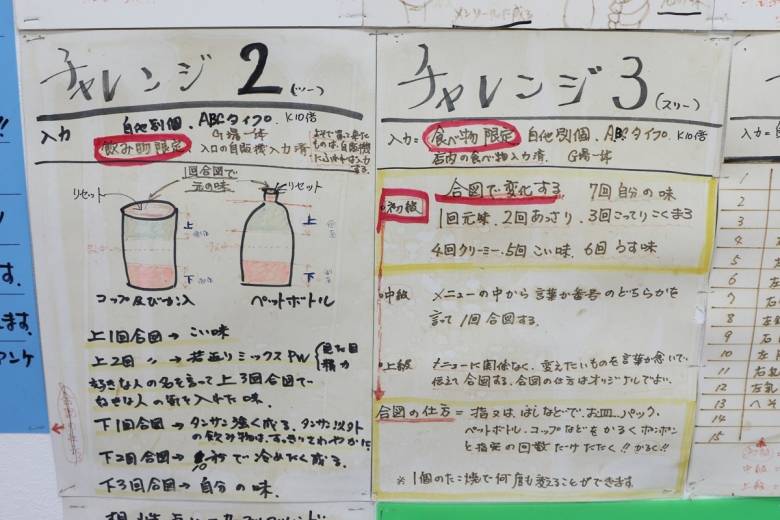 メンソールに成る
チャレンジ 2 (ツー)
入力 自他別個、ABCタイプ。K10倍
G場一体
飲み物限定 入口の自販機入力済
1回合図で
元の味
リセット
リセット
上
下
上
下
コップ及びかん入
ペットボトル
上1回合図→こい味
上2回 〃 →若返りミックスPW
好きな人の名を言って上3回合図で
好きな人の気を入れた味。
下1回合図→タンサン強く成る、タンサン以外
の飲み物は、すっきりさわやかに
下2回合図→10秒で冷めたく成る。
下3回合図→自分の味。
チャレンジ 3 (スリー)
入力= 食べ物限定 自他別個、ABCタイプ。K10倍
店内の食べ物入力済、 G場一体
初級
合図で変化する 7回自分の味
1回元味、2回あっさり、3回こってりこくまろ
4回クリーミー、5回こい味、6回うす味
中級 メニューの中から言葉か番号のどちらかを
言って1回合図する。
上級 メニューに関係なく、変えたいものを言葉か思いで、
伝えて合図する、合図の仕方はオリジナルでよい。
合図の仕方= 指又は、はしなどで、お皿、パック、
ペットボトル、コップなどをかるくポンポン
と指定の回数だけたたく!!かるく!!
※1個のたこ焼で何度も変えることができます
入力=
1
2
3
4
5
6
7
8
9
10
11
12
13
14
15